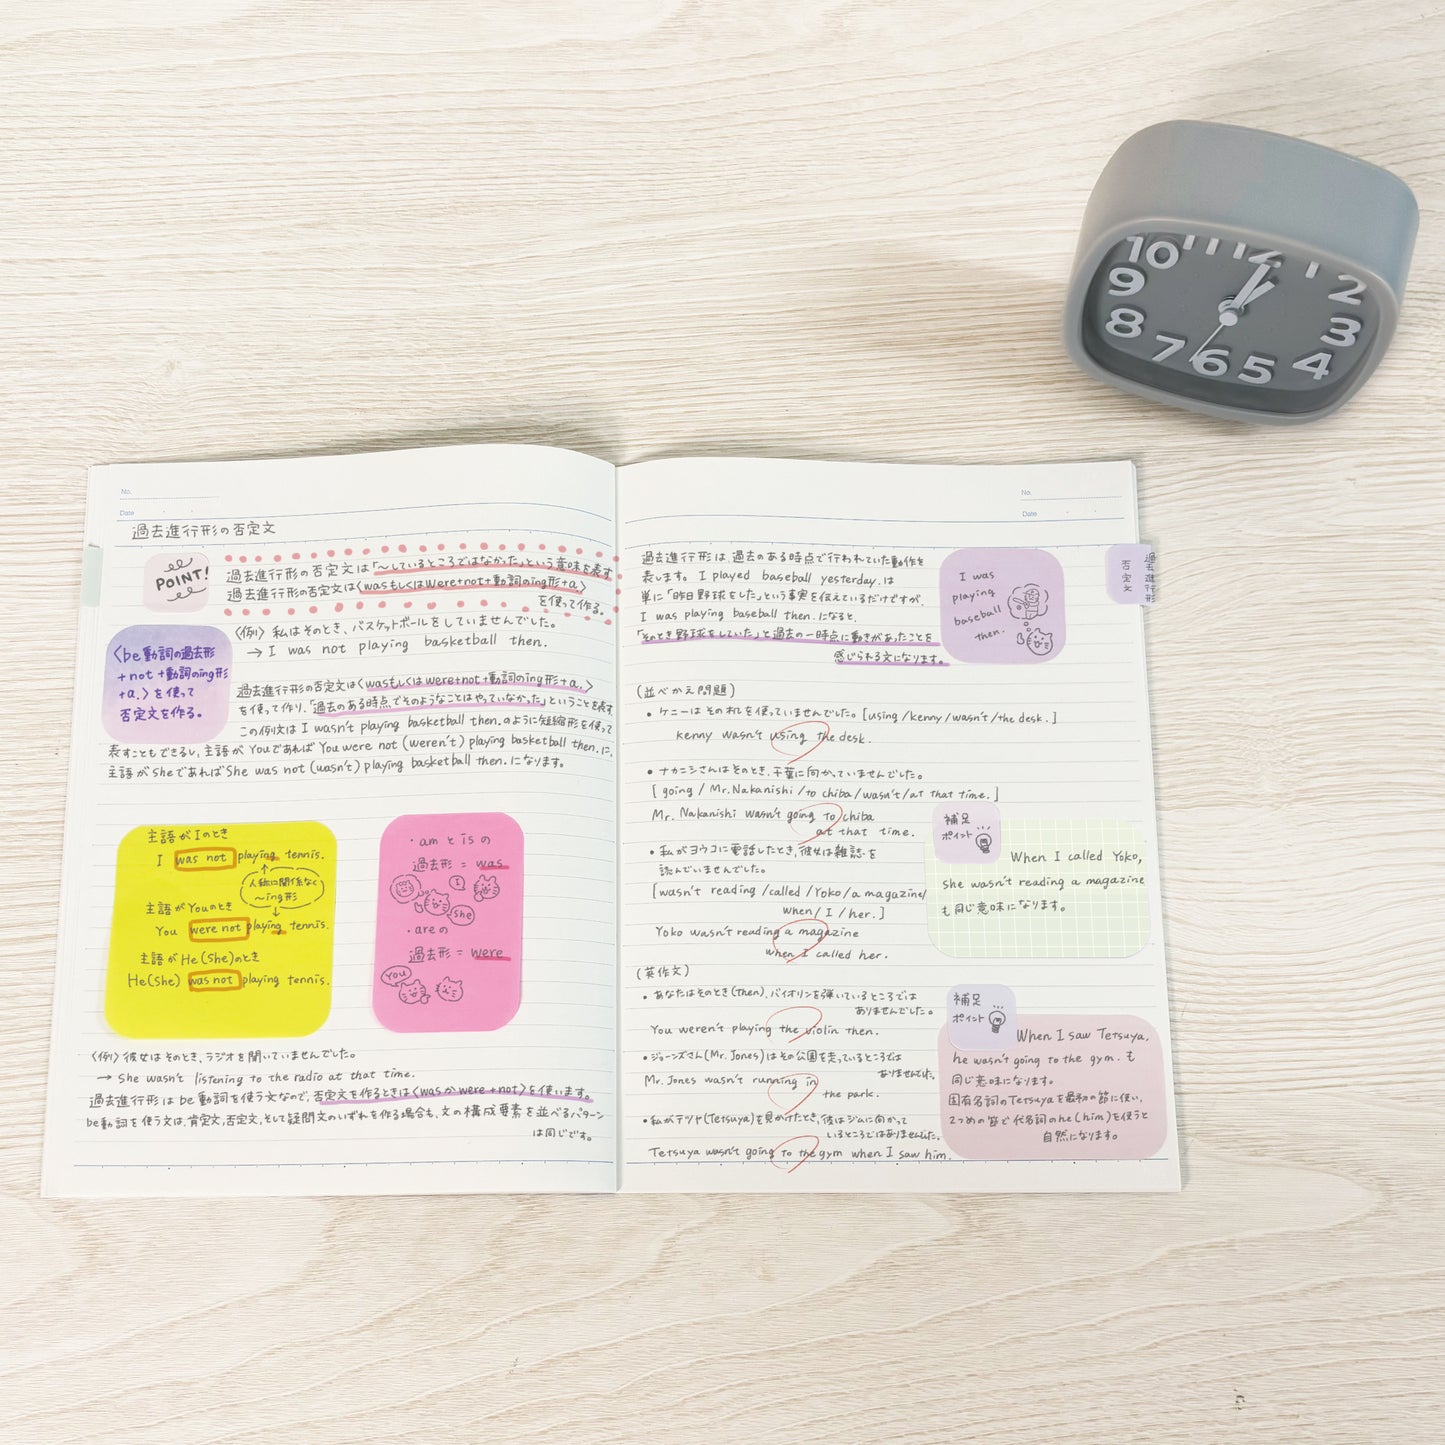 No.
Date
過去進行形の否定文
POINT!
過去進行形の否定文は「〜しているところではなかった」という意味を表す。
過去進行形の否定文は〈wasもしくはWere+not+動詞のing形+a.〉
を使って作る。
〈例〉私はそのとき、バスケットボールをしていませんでした。
→ I was not playing basketball then.
〈be動詞の過去形
+not+動詞のing形
+a.〉を使って
否定文を作る。
過去進行形の否定文は〈wasもしくはwere+not+動詞のing形+a.〉
を使って作り、「過去のある時点でそのようなことはやっていなかった」ということを表す。
この例文は I wasn't playing basketball then.のように短縮形を使って
表すこともできるし、主語が Youであれば You were not (weren't) playing basketball then.に、
主語がSheであればShe was not (wasn't) playing basketball then.になります。
主語がIのとき
I was not playing tennis.
人称に関係なく
〜ing形
主語がYouのとき
You were not playing tennis.
主語がHe(She)のとき
He(She) was not playing tennis.
・amとisの
過去形 = was
I
she
・areの
過去形 = were
You
〈例〉彼女はそのとき、ラジオを聞いていませんでした。
→ She wasn't listening to the radio at that time.
過去進行形はbe動詞を使う文なので、否定文を作るときは〈wasかwere+not〉を使います。
be動詞を使う文は、肯定文、否定文、そして疑問文のいずれを作る場合も、文の構成要素を並べるパターン
は同じです。
No.
Date
過去進行形は、過去のある時点で行われていた動作を
表します。I played baseball yesterday.は
単に「昨日野球をした」という事実を伝えているだけですが、
I was playing baseball then.になると、
「そのとき野球をしていた」と過去の一時点に動きがあったことを
感じられる文になります。
I was
playing
baseball
then.
過去進行形
否定文
(並べかえ問題)
・ケニーはその机を使っていませんでした。[using/kenny/wasn't/the desk.]
kenny wasn't using the desk.
・ナカニシさんはそのとき、千葉に向かっていませんでした。
[going / Mr.Nakanishi /to chiba/wasn't/at that time.]
Mr. Nakanishi wasn't going to chiba
at that time.
・私がヨウコに電話したとき、彼女は雑誌を
読んでいませんでした。
[wasn't reading/called/Yoko/a magazine/
when/I/her.]
Yoko wasn't reading a magazine
when I called her.
補足
ポイント
When I called Yoko,
she wasn't reading a magazine
も同じ意味になります。
(英作文)
・あなたはそのとき(then)、バイオリンを弾いているところでは
ありませんでした。
You weren't playing the violin then.
・ジョーンズさん(Mr. Jones)はその公園を走っているところでは
ありませんでした。
Mr. Jones wasn't running in
the park.
・私がテツヤ(Tetsuya)を見かけたとき、彼はジムに向かって
いるところではありませんでした。
Tetsuya wasn't going to the gym when I saw him.
補足
ポイント
When I saw Tetsuya,
he wasn't going to the gym.も
同じ意味になります。
固有名詞のTetsuyaを最初の節に使い、
2つめの節で代名詞のhe(him)を使うと
自然になります。
10 11 12 1 2
9 3
8 7 6 5 4